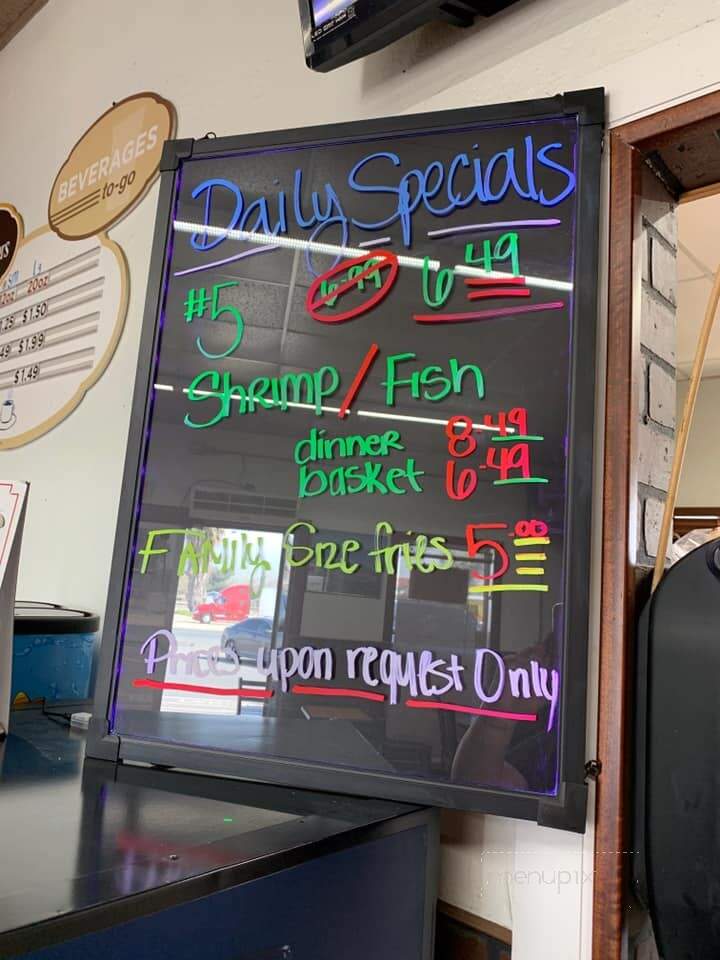 BEVERAGES
to-go
Daily Specials
#5 6.99 6 49
Shrimp / Fish
dinner 8.49
basket 6.49
FAMILY Size fries 5.00
Prices upon request Only
20oz
$1.50
$1.99
$1.49
menupix